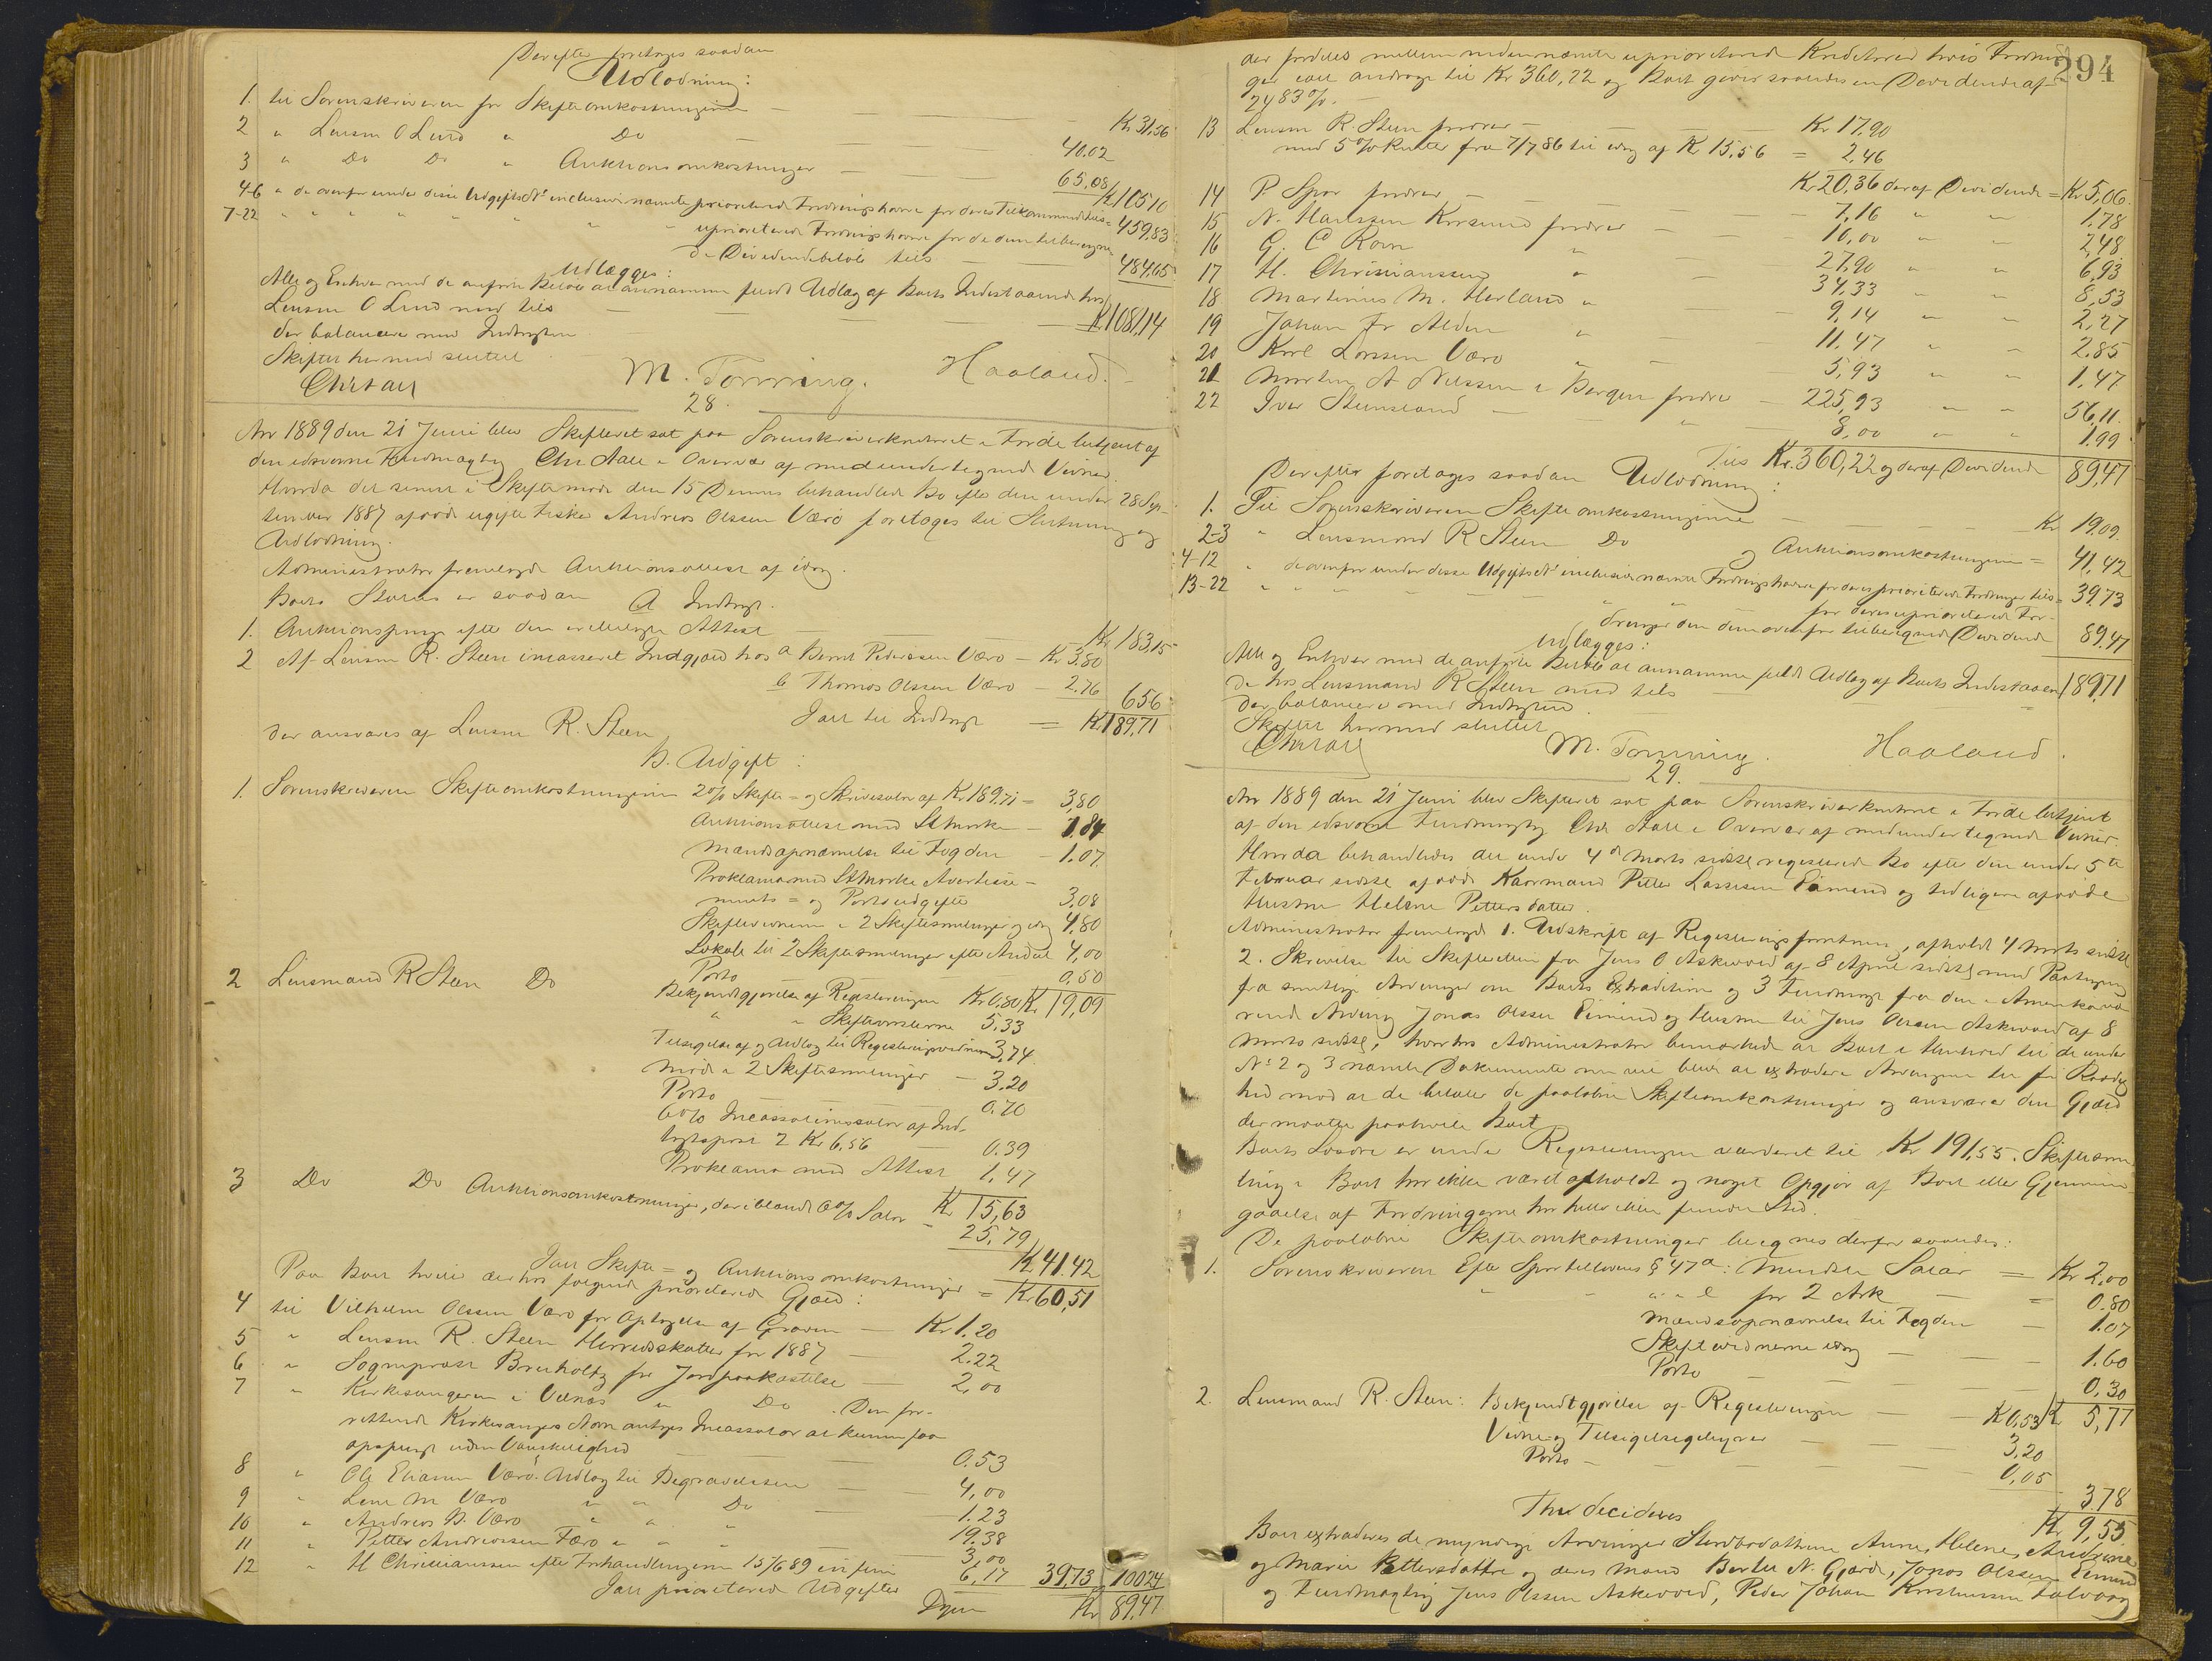 Derefter foretoges saadan
Udlodning:
1. til Sorenskriveren for Skifteomkostningerne — Kr 31,56
2 " Lensm O Lund " Do — 40.02
3 " Do Do " Auktionsomkostninger — 65,08 Kr 105 10
4-6 " de ovenfor under disse Udgifts No inclusive nævnte prioriterede Fordringshavere for deres Tilkommende tils = 459,83
7-22 " " " " " " " " uprioriterede Fordringshavere for de dem tilberegne-
de Dividendebeløb tils — 484,65
Udlægges:
Alle og Enhver med de anførte Beløb at annamme fuldt Udlæg af Boets Indestaaende hos
Lensm O Lund med tils — Kr 1081,14
der balancere med Indtægten
Skiftet hermed sluttet
Chr Aall M. Tonning. Haaland.
28.
Aar 1889 den 21 Juni blev Skifteret sat paa Sorenskriverkontoret i Førde betjent af
den edsvorne Fuldmægtig Chr Aall i Overvær af medundertegnede Vidner
Hvorda det senest i Skiftemøde den 15 Dennes behandlede Bo efter den under 28 Sep-
tember 1887 afdøde ugifte Fisker Andreas Olssen Værø foretoges til Slutning og
Udlodning.
Administrator fremlagde Auktionsattest af idag.
Boets Status er saadan A Indtægt.
1. Auktionspenge efter den vedlagte Attest — Kr 183,15
2 Af Lensm R. Steen incasseret Indgjæld hos a Bernt Pedersen Værø — Kr 3.80
b Thomas Olssen Værø — 2.76 6 56
Ialt til Indtægt = Kr 189,71
der ansvares af Lensm R. Steen
B. Udgift:
1. Sorenskriveren Skifteomkostningerne 2% Skifte= og Skrivesalær af Kr 189.71 = 3,80
Auktionsattest med St.Mærke — 1.84
Mændsopnævnelse til Fogden — 1.07
Proklama med St.Mærke Avertisse-
ments= og Portoudgifter 3,08
Skiftevidnerne i 2 Skiftesamlinger og idag 4,80
Lokale til 2 Skiftesamlinger efter Andel 4,00
Porto — 0.50
2 Lensmand R Steen Do Bekjendtgjørelse af Registreringen Kr 0,80 Kr 19,09
" " Skiftesamlingerne 5.33
Tilsigelse af og Udlæg til Registreringsvidnerne 3,74
Møde i 2 Skiftesamlinger — 3.20
Porto — 0.70
6% Incassationssalær af Ind-
tægtspost 2 Kr 6,56 — 0.39
Proklama med Attest 1,47
3 Do Do Auktionsomkostninger, deriblandt 6% Salær Kr 15,63
- 25,79
Kr 41.42
Ialt Skifte= og Auktionsomkostninger = Kr 60,51
Paa Boet hviler derhos følgende prioriterede Gjæld:
4 til Vilhelm Olssen Værø for Optagelse af Graven — Kr 1.20
5 " Lensm R. Steen Herredsskatter for 1887 — 2.22
6 " Sogneprest Bruholtz for Jordpaakastelse — 2,00
7 " Kirkesangeren i Vilnes " Do. Den for-
rettende Kirkesanger Navn antages Incassator at kunne faa
opspurgt uden Vanskelighed — 0.53
8 " Ole Eliassen Værø Udlæg til Begravelsen — 4,00
9 " Lene M Værø " " Do — 1.23
10 " Andreas B. Værø " " " — 19.38
11 " Petter Andreassen Færø " " " — 3,00
12 " H Christiansen efter Forhandlingerne 15/6 89 in fine 6,17 39,73 100 24
Ialt prioriterede Udgifter
Igjen Kr 89,47
294
der fordeles mellem nedennævnte uprioriterede Kreditorer hvis Fordrin-
ger ialt andrage til Kr 360,22 og Boet giver saaledes en Dividende af
24 83 %. —
13 Lensm R. Steen fordrer — Kr 17,90
med 5% Renter fra 7/7 86 til idag af Kr 15,56 = 2,46
Kr 20,36 deraf Dividende = Kr 5,06.
14 P. Spor fordrer — 7,16 " " 1,78
15 N. Hanssen Korssund fordrer — 10,00 " " 2,48
16 G. C Ravn " — 27,90 " " 6,93
17 H. Christianssen " — 34,33 " " 8,53
18 Martinus M. Herland " — 9,14 " " 2,27
19 Johan Fr Alden " — 11,47 " " 2.85
20 Karl Larssen Værø " — 5,93 " " 1,47
21 Morten A Nilssen i Bergen fordrer — 225,93 " " 56,11.
22 Iver Stensland — " — 8,00 " " 1.99
Tils Kr. 360,22 og deraf Dividende 89,47
Derefter foretoges saadan Udlodning:
1. Til Sorenskriveren Skifteomkostningerne — Kr 19.09.
2-3 " Lensmand R Steen Do og Auktionsomkostningerne = 41,42
4-12 " de ovenfor under disse Udgifts No inclusive nævnte Fordringshavere for deres prioriterede Fordringer tils = 39,73
13-22 " " " — — — — — " " for deres uprioriterede For-
dringer den dem ovenfor tilberegnede Dividende 89,47
Udlægges:
Alle og Enhver med de anførte Beløb at annamme fuldt Udlæg af Boets Indestaaen-
de hos Lensmand R Steen med tils — 189,71
der balancere med Indtægten.
Skiftet hermed sluttet
Chr Aall M. Tonning. Haaland.
29.
Aar 1889 den 21 Juni blev Skifteret sat paa Sorenskriverkontoret i Førde betjent
af den edsvorne Fuldmægtig Chr Aall i Overvær af medundertegnede Vidner.
Hvorda behandledes det under 4de Marts sidstl registrerede Bo efter den under 5te
Februar sidstl afdøde Kaarmand Petter Lassesen Eimind og tidligere afdøde
Hustru Helene Pettersdatter.
Administrator fremlagde 1. Udskrift af Registreringsforretning, afholdt 4 Marts sidstl
2. Skrivelse til Skifteretten fra Jens O Askevold af 8 April sidstl med Paategning
fra samtlige Arvinger om Boets Extradition og 3 Fuldmagt fra den i Amerika væ-
rende Arving Jonas Olssen Eimind og Hustru til Jens Olssen Askevold af 8
Marts sidstl, hvorhos Administrator bemærkede at Boet i Henhold til de under
No 2 og 3 nævnte Dokumenter nu vil blive at extradere Arvingerne til fri Raadig-
hed mod at de betaler de paaløbne Skifteomkostninger og ansvarer den Gjæld
der maatte paahvile Boet
Boets Løsøre er under Registreringen værderet til Kr 191,55. Skiftesam-
ling i Boet har ikke været afholdt og noget Opgjør af Boet eller Gjennem-
gaaelse af Fordringerne har heller ikke fundet Sted.
De paaløbne Skifteomkostninger beregnes derfor saaledes:
1. Sorenskriveren Efter Sportellovens § 47 a: Mindste Salær = Kr 2,00
" " " " l for 2 Ark — = 0.80
Mændsopnævnelse til Fogden — 1.07
Skiftevidnerne idag — 1.60
Porto — 0,30
2. Lensmand R. Steen: Bekjendtgjørelse af Registreringen — Kr 0,53 Kr 5,77
Vidne og Tilsigelsesgebyrer — 3,20
Porto — 0,05
3.78
Thi decideres Kr 9,55
Boet extraderes de myndige Arvinger Anne, Helene, Andrine
og Marie Pettersdøttre og deres Mænd Bertel N. Gjærde, Jonas Olssen Eimind
og Fuldmægtig Jens Olssen Askevold, Peder Johan